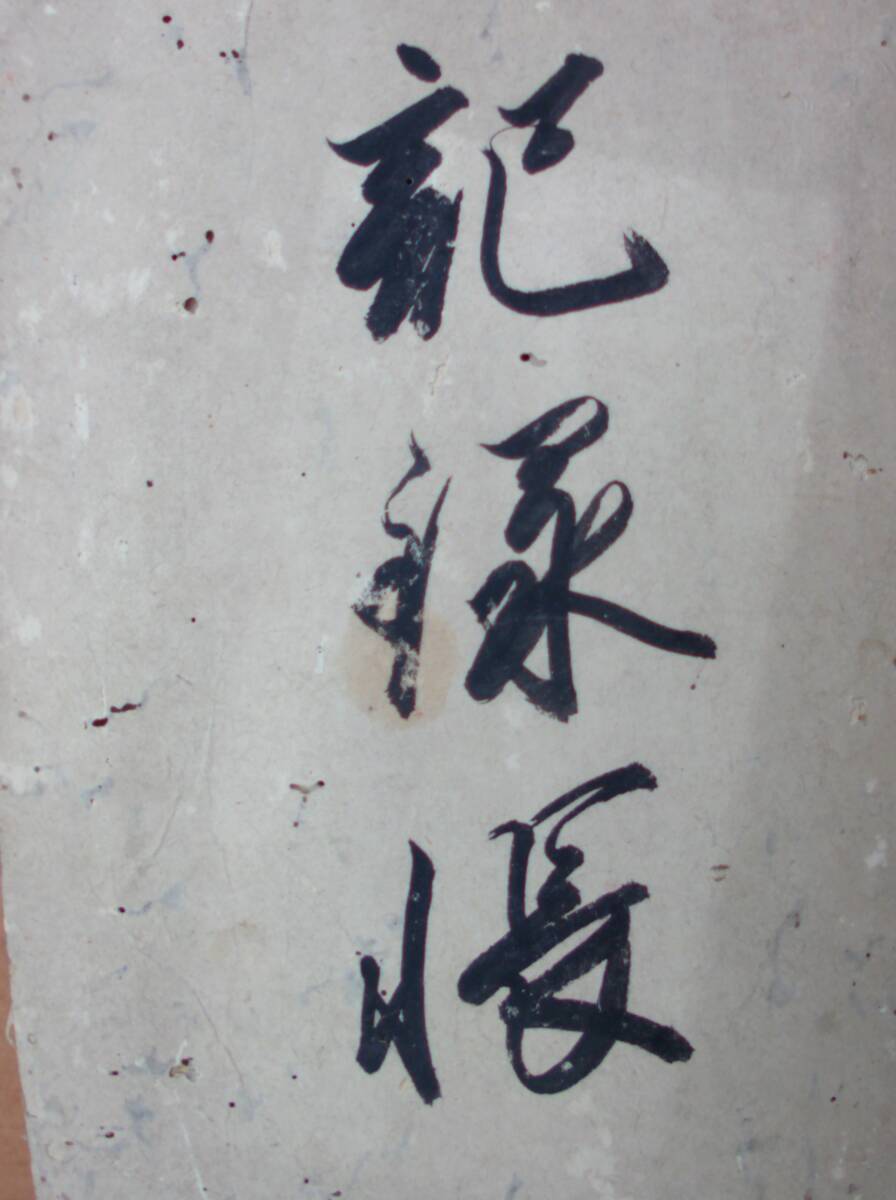 記録帳